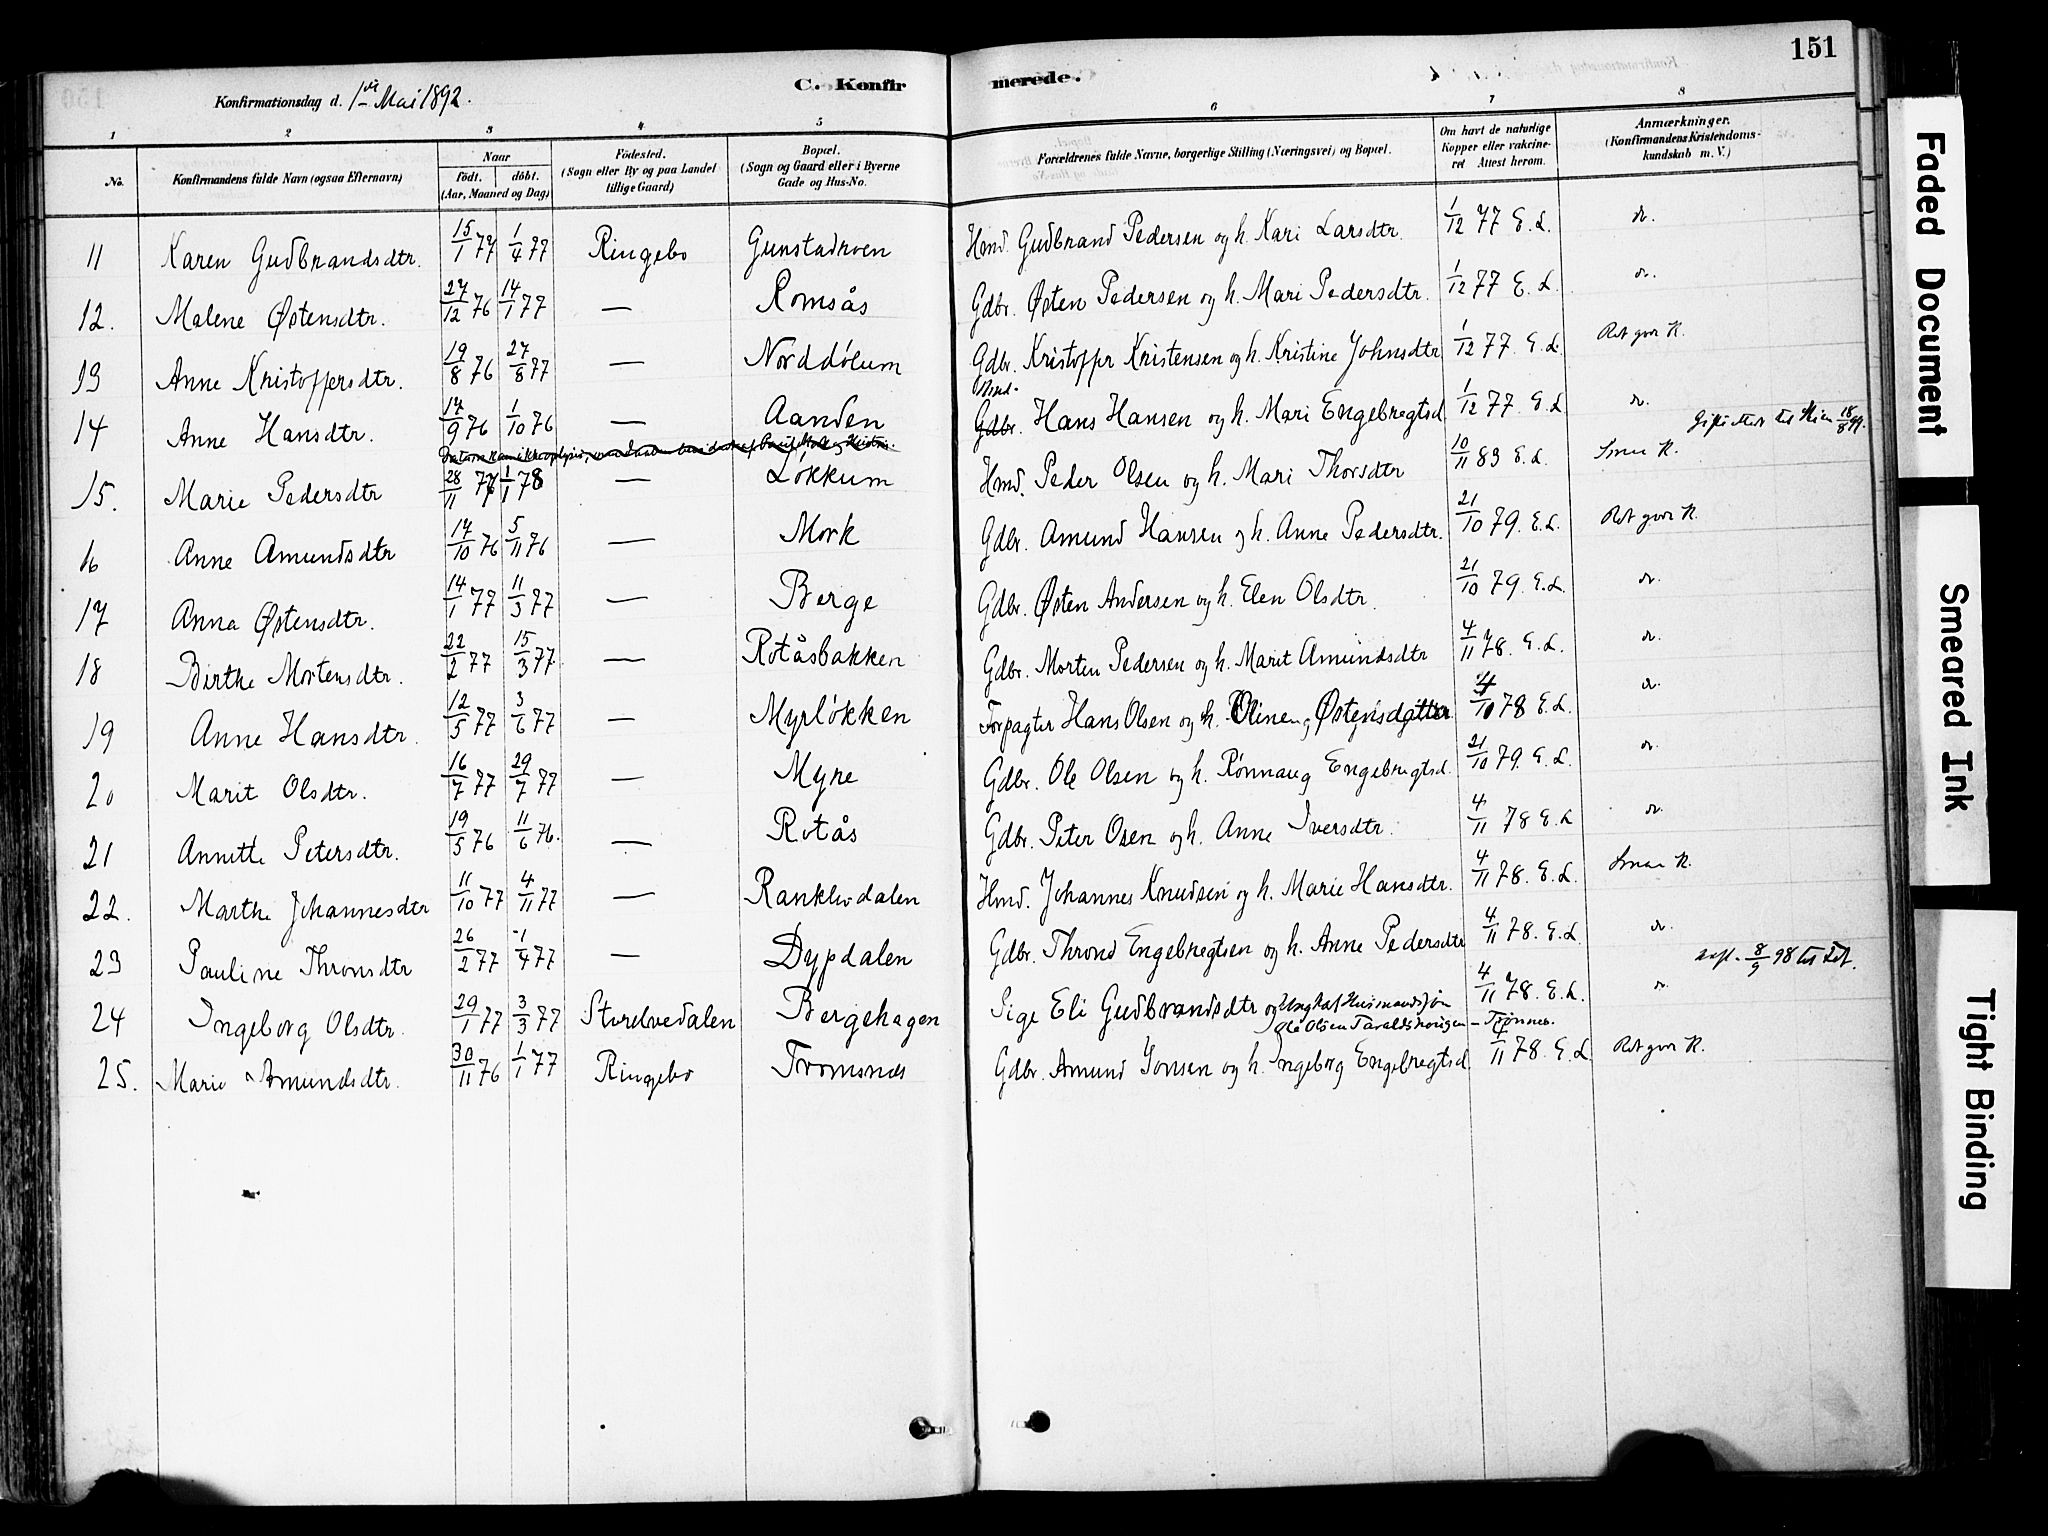 151
Konfirmationsdag d. 1ste Mai 1892.
C. Konfirmerede.
1 2 3 4 5 6 7 8
No.
Konfirmandens fulde Navn (ogsaa Efternavn)
Naar
födt. döbt.
(Aar, Maaned og Dag)
Födested.
(Sogn eller By og paa Landet
tillige Gaard)
Bopæl.
(Sogn og Gaard eller i Byerne
Gade og Hus-No.
Forældrenes fulde Navne, borgerlige Stilling (Næringsvei) og Bopæl.
Om havt de naturlige
Kopper eller vakcine-
ret Attest herom.
Anmærkninger.
(Konfirmandens Kristendoms-
kundskab m. V.)
11 Karen Gudbrandsdtr. 15/1 77 1/4 77 Ringebo Gunstadroen Hmd. Gudbrand Pedersen og h. Kari Larsdtr. 1/12 77 E. L. do.
12. Malene Østensdtr. 27/12 76 14/1 77 — Romsås Gdbr. Østen Pedersen og h. Mari Pedersdtr. 1/12 77 E. L. do.
13 Anne Kristoffersdtr. 19/8 76 27/8 77 — Norddølum Gdbr. Kristoffr Kristensen og h. Kristine Johnsdtr 1/12 77. E. L. Ret god K.
14 Anne Hansdtr. 17/9 76 1/10 76 — Aanden Gdbr. Hans Hansen og h. Mari Engebregtsd 1/12 77. E. L. do.
18/8 99.
15. Marie Pedersdtr 28/11 77 1/1 78 — Løkkum Hmd. Peder Olsen og h. Mari Thorsdtr 10/11 83 E. L.
16 Anne Amundsdtr 14/10 76 5/11 76 — Mork Gdbr. Amund Hansen og h. Anne Pedersdtr. 21/10 79. E. L. Ret god K.
17 Anna Østensdtr. 14/1 77 11/3 77 — Berge Gdbr. Østen Andersen og h. Elen Olsdtr. 21/10 79. E. L. do.
18 Birthe Mortensdtr. 22/2 77 15/3 77 — Rotåsbakken Gdbr. Morten Pedersen og h. Marit Amundsdtr 4/11 78. E. L. do.
19 Anne Hansdtr. 12/5 77 3/6 77 — Myrløkken Forpagter Hans Olsen og h. Oline Østensdatter 4/10 78 E. L. do.
20 Marit Olsdtr. 16/7 77 29/7 77 — Myre Gdbr. Ole Olsen og h. Rønnaug Engebregtsd. 21/10 79. E. L. do.
21 Annette Petersdtr. 19/5 76 11/6 76. — Rotås Gdbr. Peter Osen og h. Anne Iversdtr. 4/11 78 E. L do.
22. Marthe Johannesdtr 11/10 77 4/11 77 — Ranklevdalen Hmd. Johannes Knudsen og h. Marie Hansdtr. 4/11 78. E. L.
23 Pauline Thronsdtr 26/2 77 1/4 77 — Dypdalen Gdbr. Thrond Engebregtsen og h. Anne Pedersdtr 4/11 78. E. L. do.
8/9 98
24 Ingeborg Olsdtr. 29/1 77 3/3 77 Storelvedalen Bergehagen Pige Eli Gudbrandsdtr og Ungkal Husmandssøn 4/11 78. E. L. do.
Ole Olsen
25. Marie Amundsdtr. 30/11 76 1/1 77 Ringebo Tromsnes Gdbr. Amund Jonsen og h. Ingeborg Engebregtsd. 4/11 78. E. L Ret god K.
Faded Document
Smeared Ink
Tight Binding